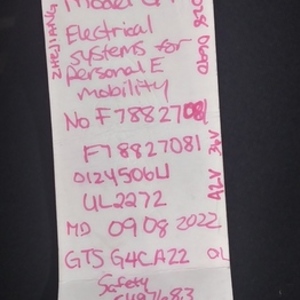 Model
Electrical
systems for
personal E
mobility
No F78827081
F78827081
01245064
UL2272
MD 09 08 2022
GTS G4CA22 OL
Safety
ZHEJIANG
0690
42V